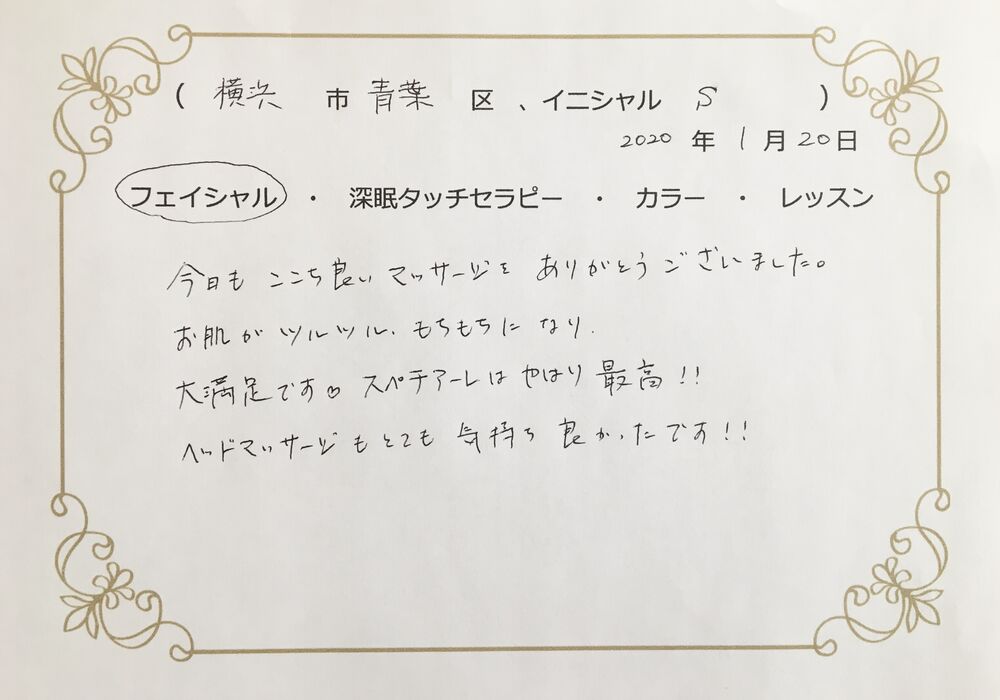 ( 横浜 市 青葉 区 、イニシャル S )
2020 年 1 月 20 日
フェイシャル ・ 深眠タッチセラピー ・ カラー ・ レッスン
今日も ここち良い マッサージを ありがとうございました。
お肌が ツルツル、もちもちに なり、
大満足です♡ スペチアーレは やはり 最高!!
ヘッドマッサージも とても 気持ち 良かったです!!